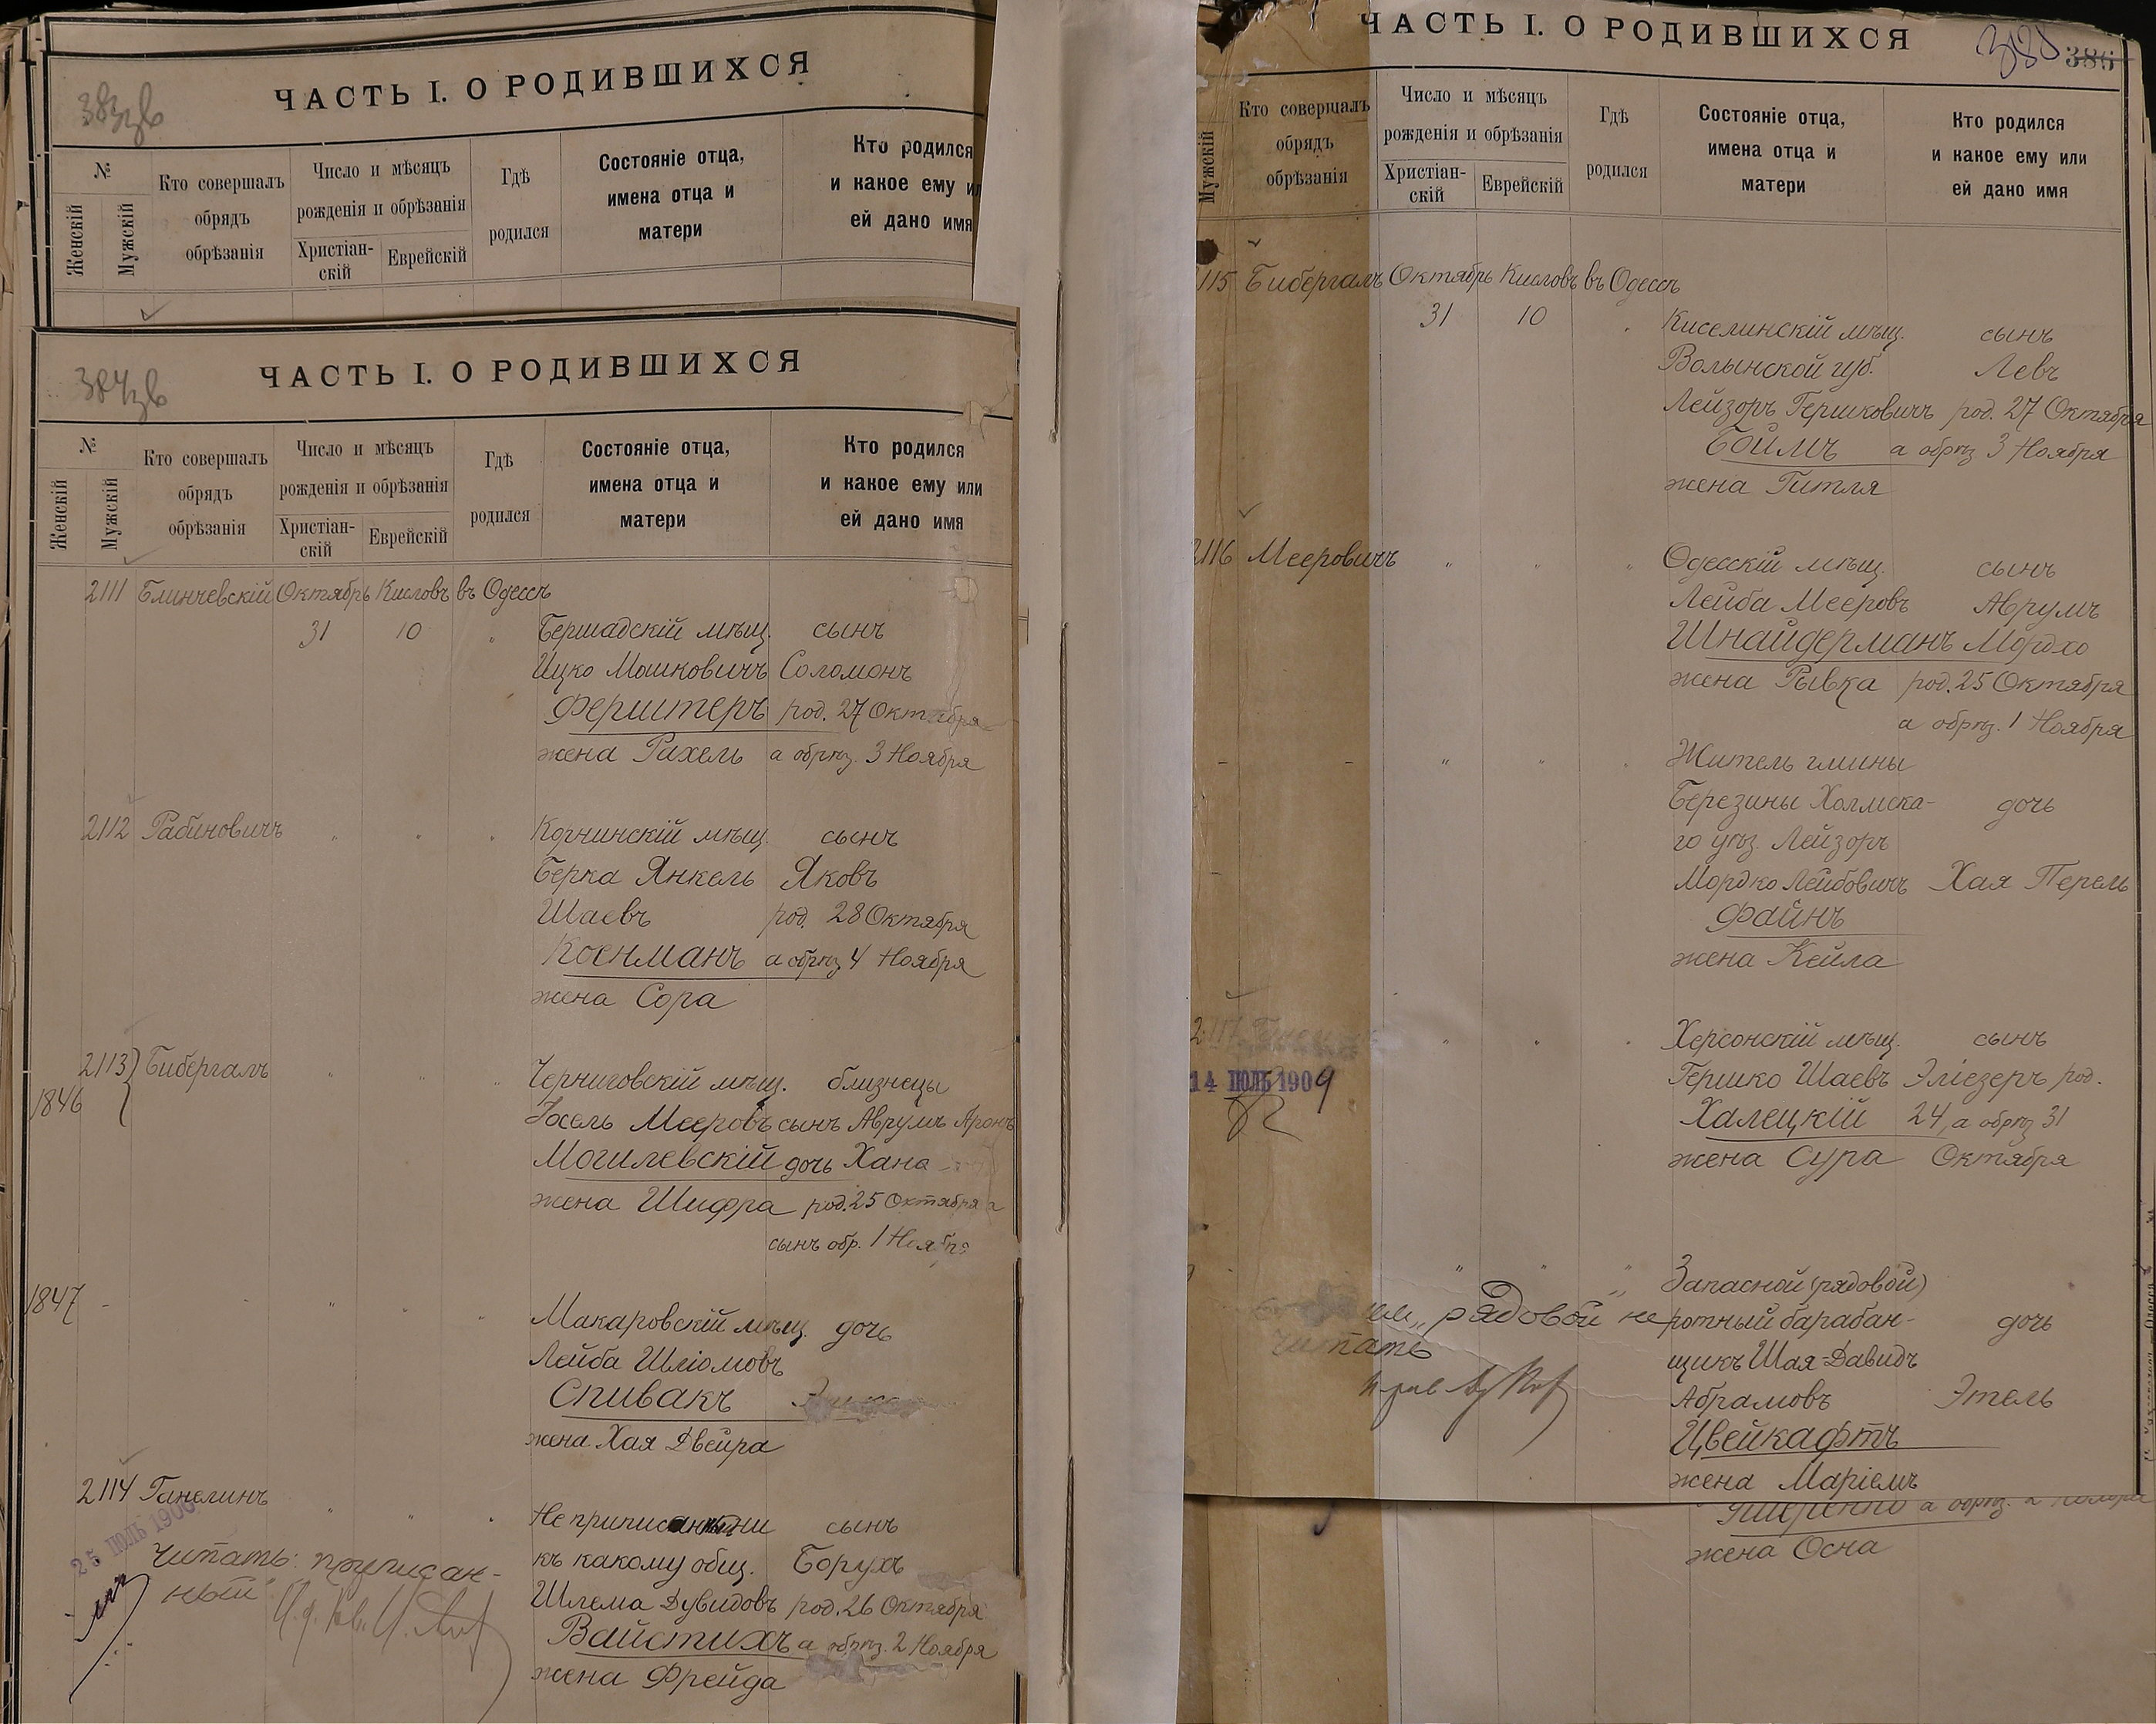 383 зв
ЧАСТЬ I. О РОДИВШИХСЯ
№
Женскій
Мужскій
Кто совершалъ
обрядъ
обрѣзанія
Число и мѣсяцъ
рожденія и обрѣзанія
Христіан-
скій
Еврейскій
Гдѣ
родился
Состояніе отца,
имена отца и
матери
Кто родился
и какое ему
ей дано имя
384 зв
ЧАСТЬ I. О РОДИВШИХСЯ
№
Женскій
Мужскій
Кто совершалъ
обрядъ
обрѣзанія
Число и мѣсяцъ
рожденія и обрѣзанія
Христіан-
скій
Еврейскій
Гдѣ
родился
Состояніе отца,
имена отца и
матери
Кто родился
и какое ему или
ей дано имя
2111 Блинчевскій Октябрь Кисловъ въ Одессѣ
31 10 " Бершадскій мѣщ. сынъ
Ицко Мошковичъ Соломонъ
Ферштеръ род. 27 Октября
жена Рахель а обрѣз. 3 Ноября
2112 Рабиновичъ " " " Корнинскій мѣщ. сынъ
Берка Янкель Яковъ
Шаевъ род. 28 Октября
Коенманъ а обрѣз 4 Ноября
жена Сора
2113 Бибергалъ " " " Черниговскій мѣщ. близнецы
1846 Іосель Мееровъ сынъ Аврумъ Аронъ
Могилевскій дочь Хана
жена Шифра род. 25 Октября а
сынъ обр. 1 Ноября
1847 - " " " Макаровскій мѣщ. дочь
Лейба Шліомовъ
Спивакъ
жена Хая Двейра
2114 Ганелинъ " " " Не приписанный ни сынъ
къ какому общ. Борухъ
Шлема Дувидовъ род. 26 Октября
Вайстихъ а обрѣз. 2 Ноября
жена Фрейда
25 ІЮЛЬ 190
Читать: приписан-
ный"
ЧАСТЬ I. О РОДИВШИХСЯ
386
Мужскій
Кто совершалъ
обрядъ
обрѣзанія
Число и мѣсяцъ
рожденія и обрѣзанія
Христіан-
скій
Еврейскій
Гдѣ
родился
Состояніе отца,
имена отца и
матери
Кто родился
и какое ему или
ей дано имя
115 Бибергалъ Октябрь Кисловъ въ Одессѣ
31 10 " Киселинскій мѣщ. сынъ
Волынской губ. Левъ
Лейзоръ Гершковичъ род. 27 Октября
Боймъ а обрѣз 3 Ноября
жена Гитля
2116 Мееровичъ " " " Одесскій мѣщ. сынъ
Лейба Мееровъ Аврумъ
Шнайдерманъ Мордхо
жена Рывка род. 25 Октября
а обрѣз. 1 Ноября
- - " " " Житель гмины
Березины Холмска- дочь
го уѣз. Лейзоръ
Мордко Лейбовичъ Хая Перель
Файнъ
жена Кейла
2117 " " " Херсонскій мѣщ. сынъ
Гершко Шаевъ Эліезеръ род.
Халецкій 24, а обрѣз 31
жена Сура Октября
14 ІЮЛЬ 1909
" " " Запасной (рядовой)
"рядовой не ротный барабан- дочь
читать щикъ Шая-Давидъ
Абрамовъ Этель
Цвейкафтъ
жена Маріемъ
а обрѣз. 2 Ноября
жена Осна